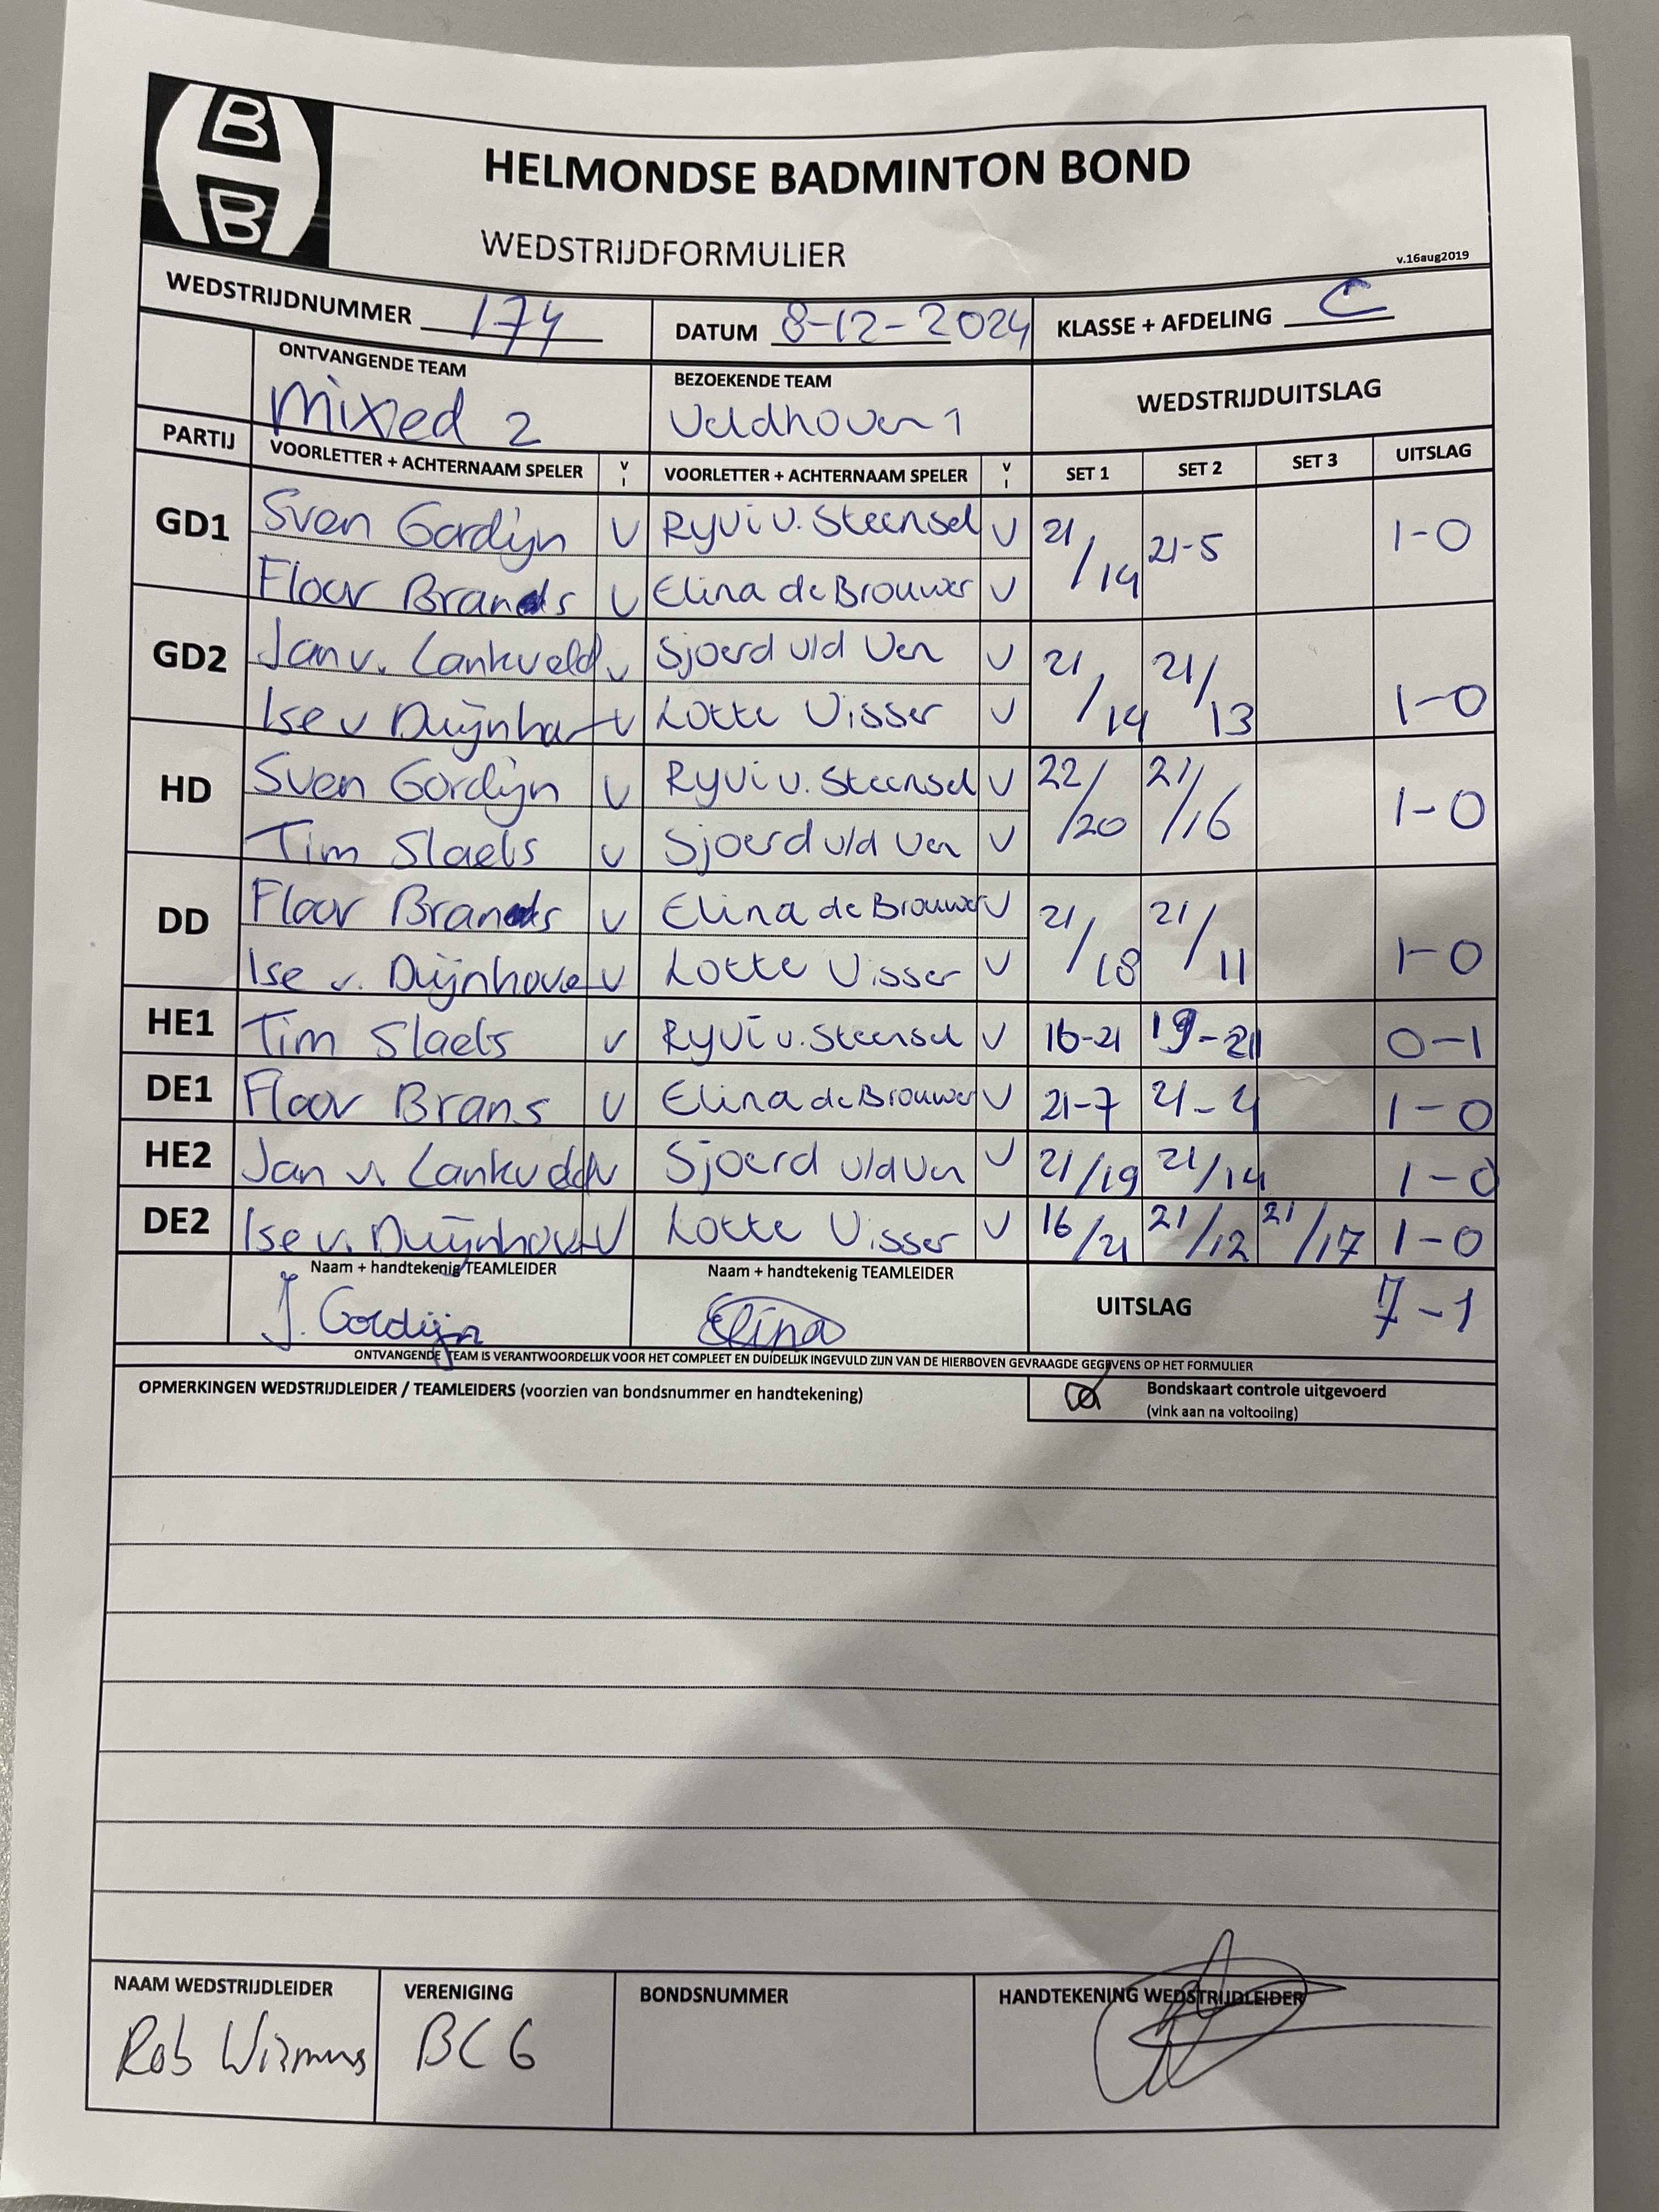 B
B
HELMONDSE BADMINTON BOND
WEDSTRIJDFORMULIER
v.16aug2019
WEDSTRIJDNUMMER 174 DATUM 8-12-2024 KLASSE + AFDELING C
ONTVANGENDE TEAM BEZOEKENDE TEAM WEDSTRIJDUITSLAG
Mixed 2 Veldhoven 1
PARTIJ VOORLETTER + ACHTERNAAM SPELER V I VOORLETTER + ACHTERNAAM SPELER V I SET 1 SET 2 SET 3 UITSLAG
GD1 Sven Gordijn V Ryvi v. Steensel V 21/14 21-5 1-0
Floor Brands V Elina de Brouwer V
GD2 Jan v. Lankveld V Sjoerd v/d Ven V 21/14 21/13 1-0
Ise v Duijnho V Lotte Visser V
HD Sven Gordijn V Ryvi v. Steensel V 22/20 21/16 1-0
Tim Slaets V Sjoerd v/d Ven V
DD Floor Brands V Elina de Brouwer V 21/18 21/11 1-0
Ise v. Duijnhove V Lotte Visser V
HE1 Tim Slaets V Ryvi v. Steensel V 16-21 19-21 0-1
DE1 Floor Brans V Elina de Brouwer V 21-7 21-4 1-0
HE2 Jan v. Lankveld V Sjoerd v/d Ven V 21/19 21/14 1-0
DE2 Ise v. Duijnhov V Lotte Visser V 16/21 21/12 21/17 1-0
Naam + handtekenig TEAMLEIDER Naam + handtekenig TEAMLEIDER UITSLAG 7-1
J. Gordijn Elina
ONTVANGENDE TEAM IS VERANTWOORDELIJK VOOR HET COMPLEET EN DUIDELIJK INGEVULD ZIJN VAN DE HIERBOVEN GEVRAAGDE GEGEVENS OP HET FORMULIER
OPMERKINGEN WEDSTRIJDLEIDER / TEAMLEIDERS (voorzien van bondsnummer en handtekening) Bondskaart controle uitgevoerd
(vink aan na voltooiing)
NAAM WEDSTRIJDLEIDER VERENIGING BONDSNUMMER HANDTEKENING WEDSTRIJDLEIDER
Rob BCG